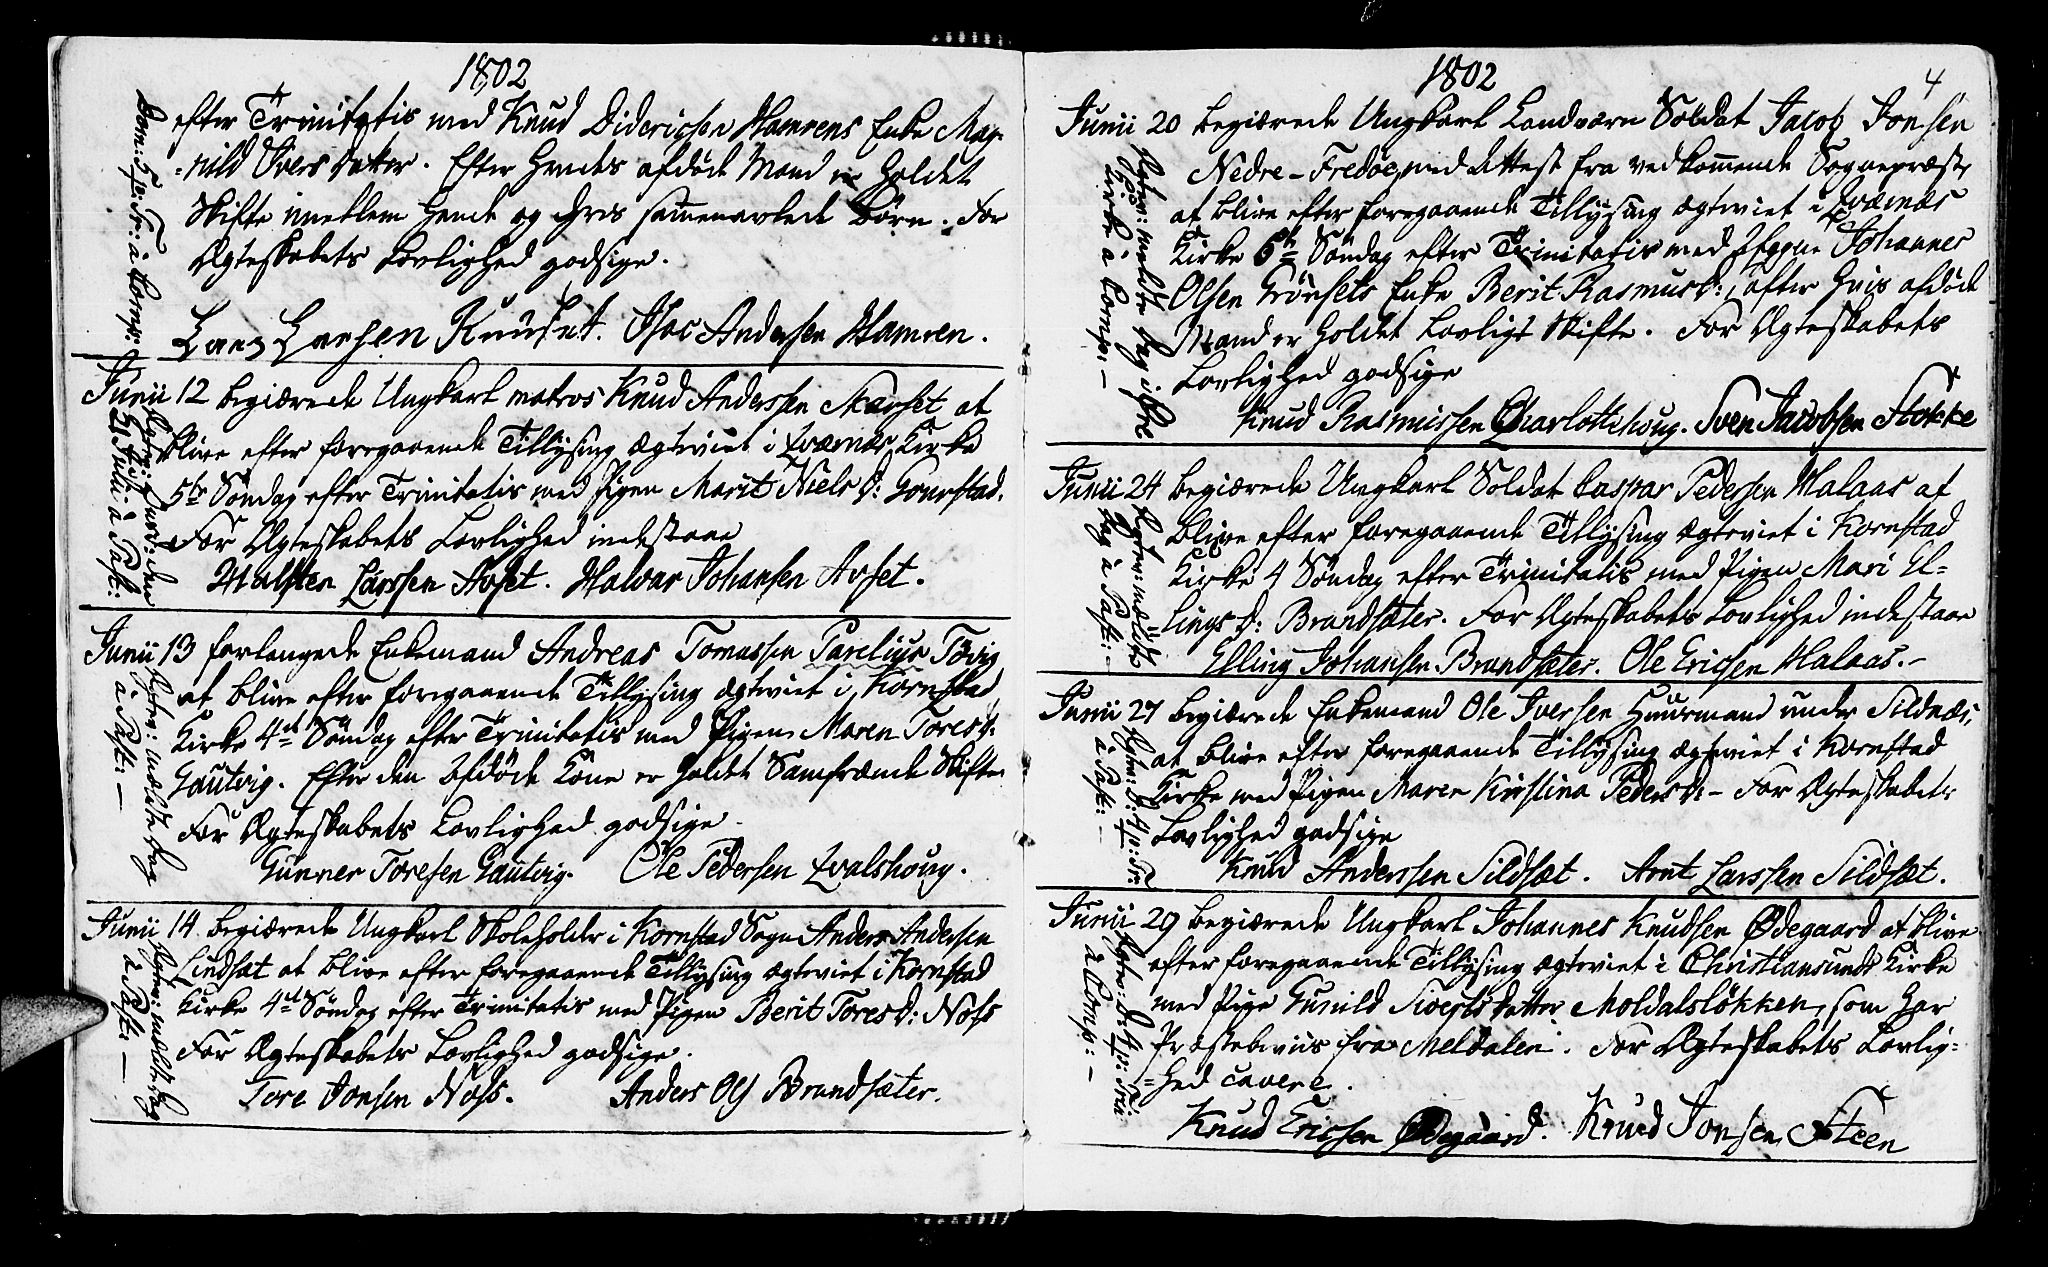 1802
efter Trinitatis med Knud Diderichsen Hamrens Enke Mag-
nild Ivers Datter. Efter hendes afdøde Mand er holdet
Skifte imellem hende og hans sammenavlede Børn. For
Ægteskabets Lovlighed godsige.
Lars Larsen Isac Andersen Hamren.
Junii 12 begiærede Ungkarl matros Knud Anderssen Skarset at
blive efter foregaaende Tillysing ægteviet i Qværnæs Kirke
5te Søndag efter Trinitatis med Pigen Marit Niels D:
For Ægteskabets Lovlighed indestaae
Halsten Larssen Avset. Halvar Johansen Avset.
Junii 13 forlangede Enkemand Andreas Tomassen Parelius Tøvig
at blive efter foregaaende Tillysing ægteviet i Kornstad
Kirke 4de Søndag efter Trinitatis med Pigen Maren Tores D:
Gautvig. Efter den afdøde Kone er holdet Samfrænde Skifte
For Ægteskabets Lovlighed godsige
Gunner Toresen Gautvig. Ole Pedersen Qvalshoug.
Junii 14. begiærede Ungkarl Skoleholder i Kornstad Sogn Anders Andersen
Lindsæt at blive efter foregaaende Tillysing ægteviet i Kornstad
Kirke 4de Søndag efter Trinitatis med Pigen Berit Tores D: Nass
For Ægteskabets Lovlighed godsige.
Tore Jonsen Nass. Anders Ols Brandsæter.
1802
4
Junii 20 begiærede Ungkarl Landværn Soldat Jacob Jonsen
Nedre-Fredøe, med Attest fra vedkommende Sognepræst,
at blive efter foregaaende Tillysing ægteviet i Qværnæs
Kirke 5te Søndag efter Trinitatis med Johannes
Olsen Grønsets Enke Berit Rasmus D:, efter hvis afdøde
Mand er holdet Lovligt Skifte. For Ægteskabets
Lovlighed godsige
Knud Rasmussen Charlottehoug. Sven Jacobsen Stokke
Junii 24 begiærede Ungkarl Soldat Caspar Pedersen Halaas at
blive efter foregaaende Tillysing ægteviet i Kornstad
Kirke 4 Søndag efter Trinitatis med Pigen Mari El-
lings D: Brandsæter. For Ægteskabets Lovlighed indestaae
Elling Johansen Brandsæter. Ole Ericsen Halaas.-
Junii 27 begiærede Enkemand Ole Iversen Huusmand under Sildnæs,
at blive efter foregaaende Tillysing ægteviet i Kornstad
Kirke med Pigen Maren Kirstina Peders D:- For Ægteskabets
Lovlighed godsige
Knud Anderssen Sildsæt. Arnt Larssen Sildsæt.
Junii 29 begiærede Ungkarl Johannes Knudsen Ødegaard at blive
efter foregaaende Tillysing ægteviet i Christiansunds Kirke
med Pige Gunild Siverts datter Moldalsløkken, som har
Præstebeviis fra Meldalen. For Ægteskabets Lovlig-
hed cavere.
Knud Ericsen Ødegaard. Knud Jonsen Steen